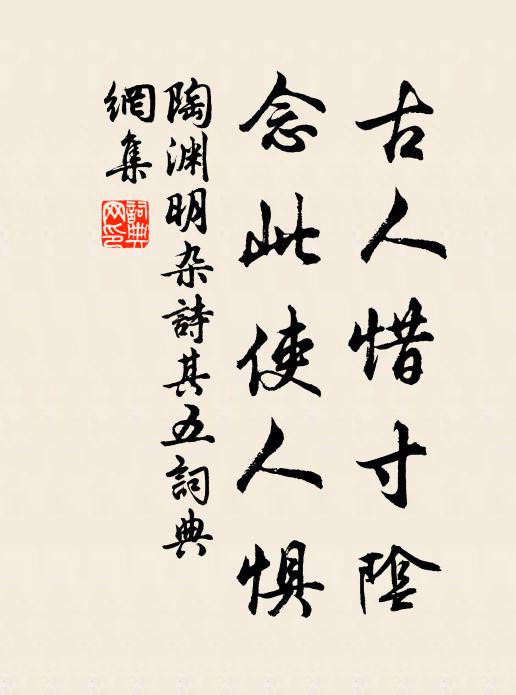 古人惜寸陰
念此使人懼
陶渊明杂詩其五詞典
網集
詞典网印